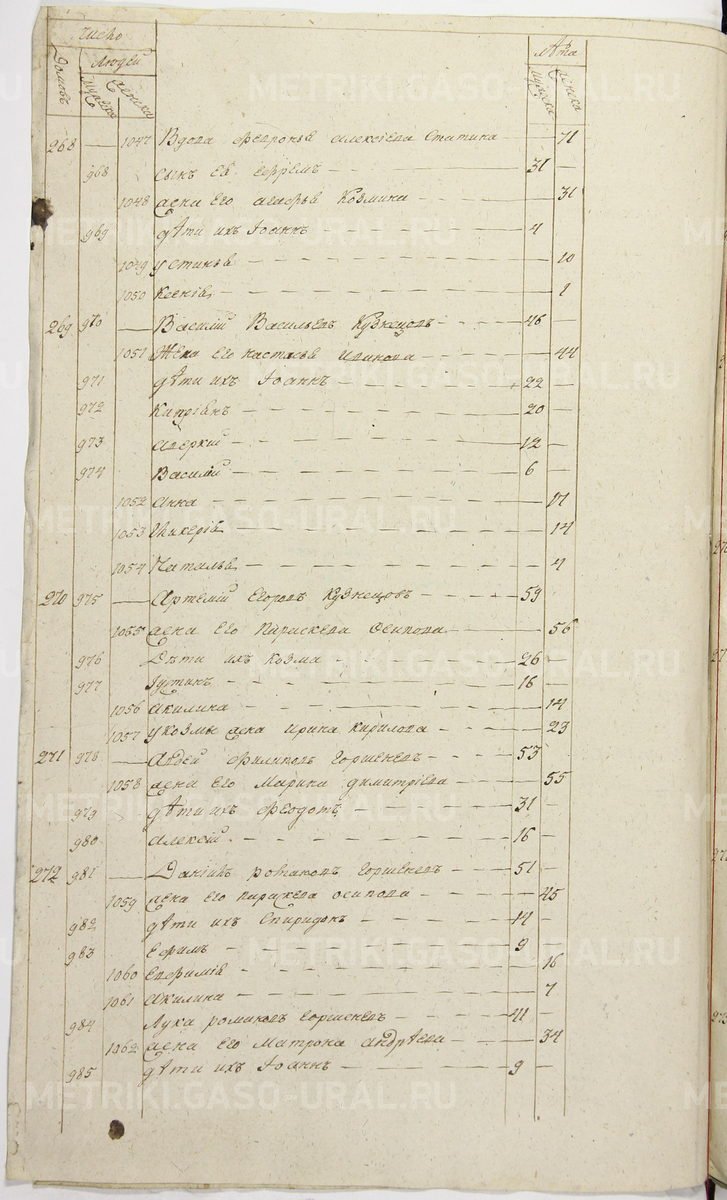 Число
Людей
Лѣта
Домовъ
мужеска
женска
мужеска
женска
268 — 1047 Вдова Февронья Алексіева Статина — 71
968 сынъ ея Ефремъ — 31 —
1048 жена Его Агафья Козмина — 31
969 дѣти ихъ Іоаннъ — 4 —
1049 устинья — 10
1050 Ксенія — 1
269 970 — Василій Васильевъ Кузнецовъ — 46 —
1051 Жена Его Настасья Иванова — 44
971 дѣти ихъ Іоаннъ — 22 —
972 Кипріянъ — 20
973 Аверкій — 12 —
974 Василій — 6 —
1052 Анна — 17
1053 Гликерія — 14
1054 Наталья — 4
270 975 — Артемій Егоровъ Кузнецовъ — 59 —
1055 жена Его Параскева Осипова — 56
976 Дѣти ихъ Козма — 26 —
977 Іустинъ — 16 —
1056 Акилина — 14
1057 у Козмы жена Ирина Кирилова — 23
271 978 — Авдей Филиповъ Горшеневъ — 53 —
1058 жена Его Марина Димитріева — 55
979 дѣти ихъ Феодотъ — 31 —
980 Алексій — 16 —
272 981 — Даніилъ Романовъ Горшеневъ — 51 —
1059 жена Его Параскева Осипова — 45
982 дѣти ихъ Спиридонъ — 14 —
983 Ефимъ — 9
1060 Евфимія — 16
1061 Акилина — 7
984 Лука Романовъ Горшеневъ — 41 —
1062 жена Его Матрона Андрѣева — 34
985 дѣти ихъ Іоаннъ — 9 —
METRIKI.GASO-URAL.RU